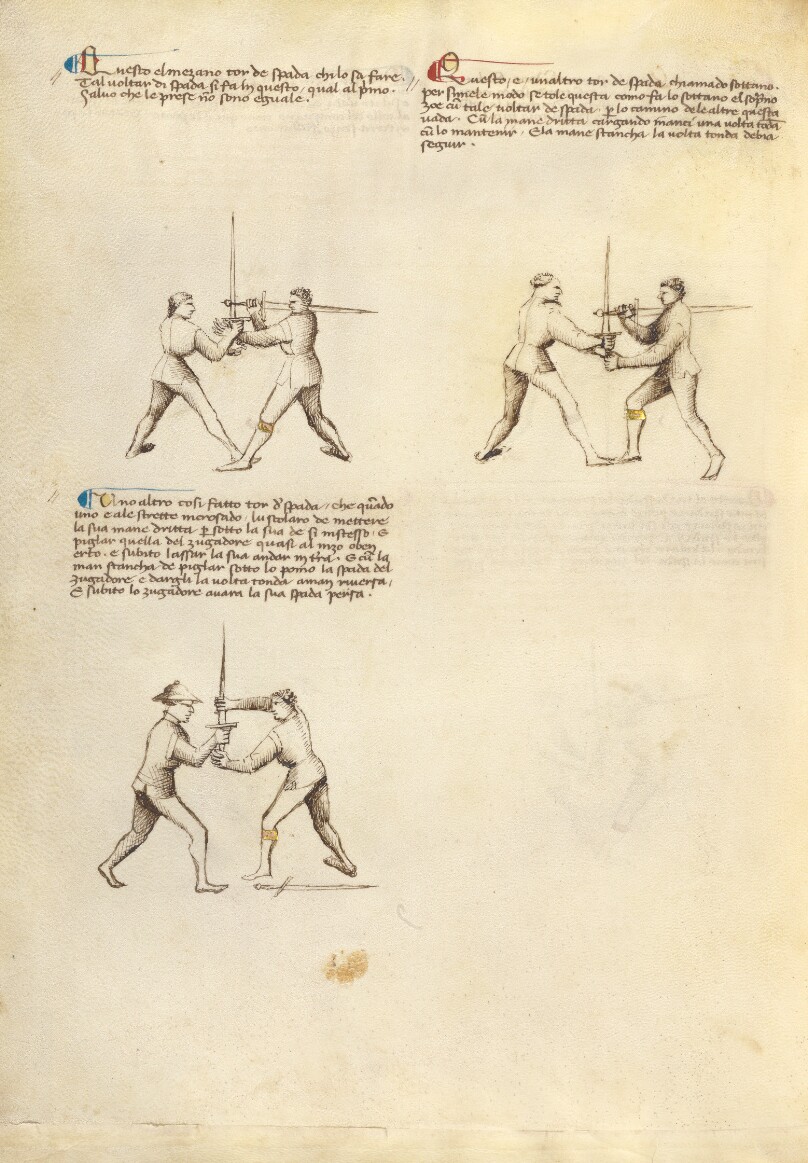 Questo el mezano tor de spada chi lo sa fare.
Tal voltar di spada si fa in questo, qual al p̃mo.
Salvo che le prese nō sono eguale.
Questo, e, un altro tor de spada chiamado sottano.
per simele modo se tole questa como fa lo sottano el sop̃no
zoe cū tale voltar de spada, p̱ lo camino dele altre questa
vada. Cū la mane dritta cargando inanci una volta tōda
cū lo mantenir. E la mane stancha la volta tonda debia
seguir.
Uno altro cosi fatto tor d̓ spada, che quādo
uno e ale strette incrosado, lu scolaro de mettere
la sua mane dritta p̱ sotto la sua de si instesso, E
piglar quella del zugadore quasi al mezo oben
erto. e subito lassar la sua andar in t̃ra. E cū la
man stancha de piglar sotto lo pomo la spada del
zugadore e dargli la volta tonda a man riversa,
E subito lo zugadore avara la sua spada persa.